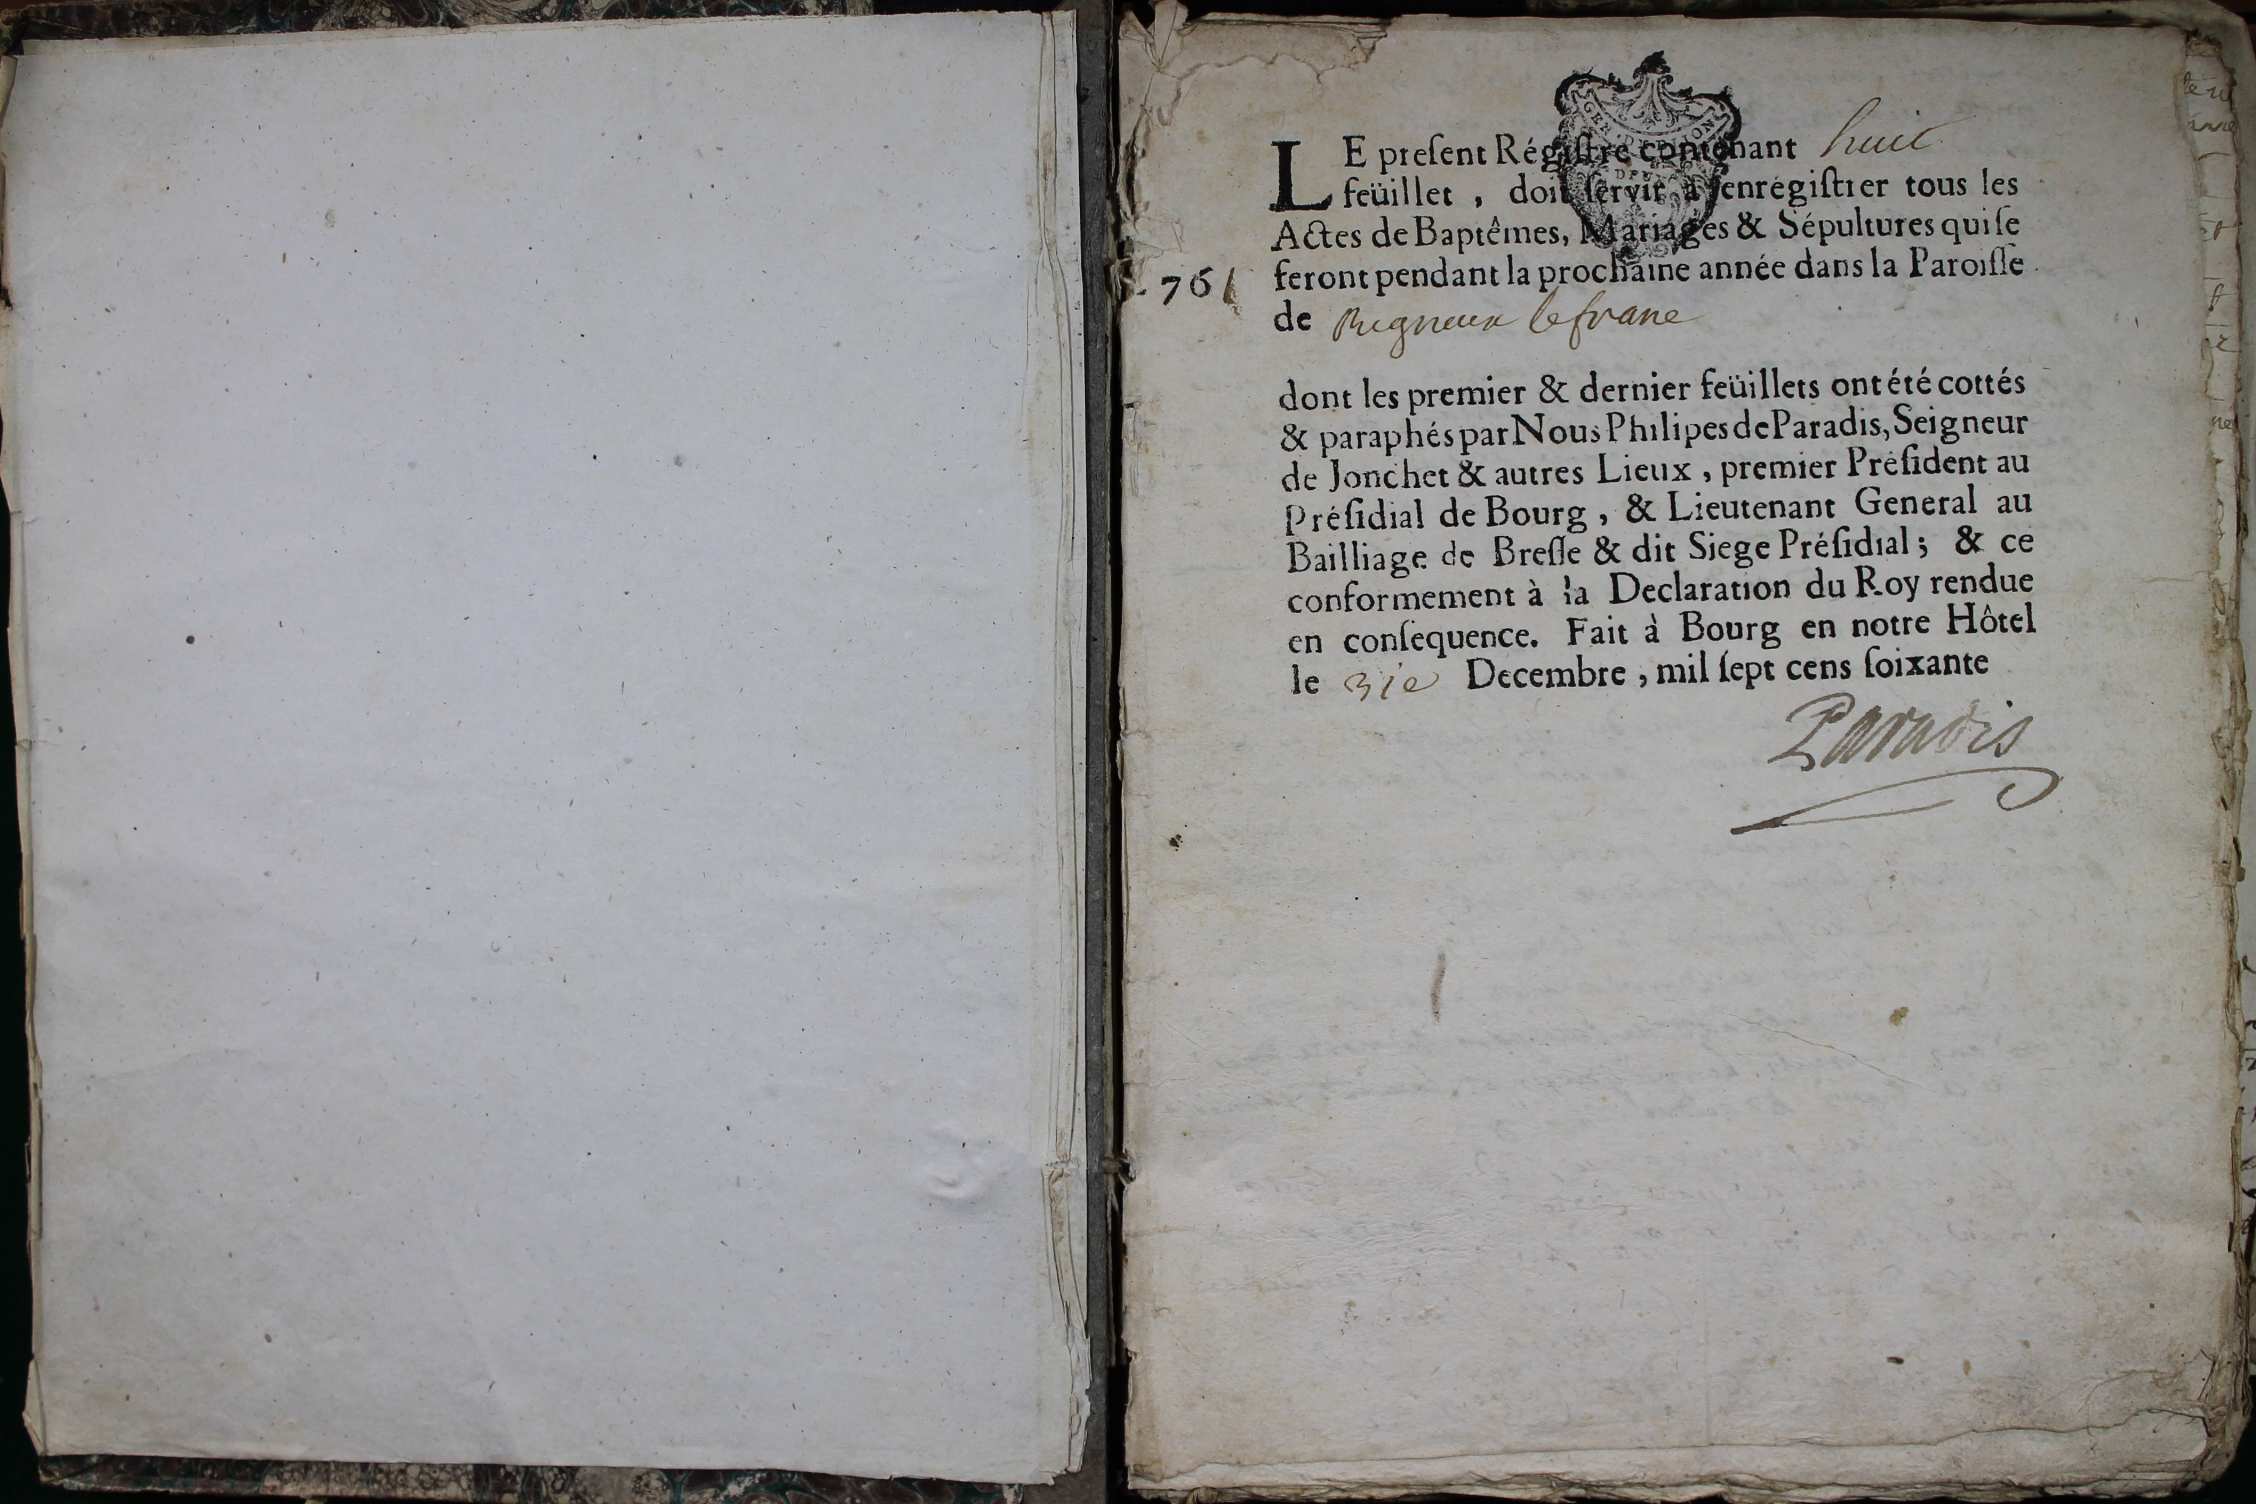 LE preſent Régiſtre contenant huit
feüillet, doit ſervir à enrégiſtrer tous les
Actes de Baptêmes, Mariages & Sépultures qui ſe
feront pendant la prochaine année dans la Paroiſſe
761
de Rigneux lefranc
dont les premier & dernier feüillets ont été cottés
& paraphés par Nous Philipes de Paradis, Seigneur
de Jonchet & autres Lieux, premier Préſident au
Préſidial de Bourg, & Lieutenant General au
Bailliage de Breſſe & dit Siege Préſidial; & ce
conformement à la Declaration du Roy rendue
en conſequence. Fait à Bourg en notre Hôtel
le 31e Decembre, mil ſept cens ſoixante
Paradis